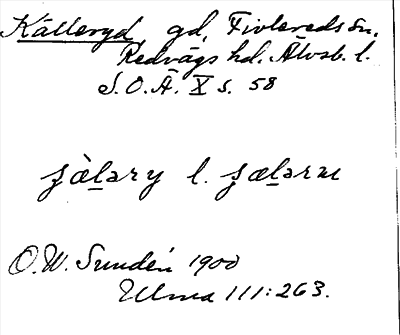 Källeryd, gd, Fivlereds sn,
Redvägs hd. Älvsb. l.
S.O.Ä. X s. 58
O.W. Sundén 1900
Ulma 111:263.